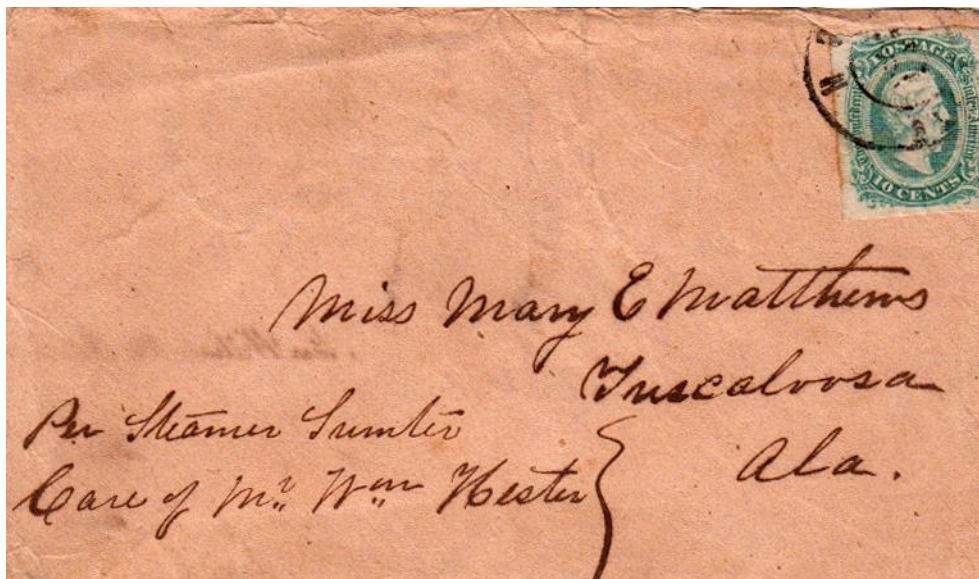 POSTAGE
10 CENTS
Miss Mary E Matthews
Tuscaloosa
Ala.
Per Steamer Sumter
Care of Mr. Wm Hester